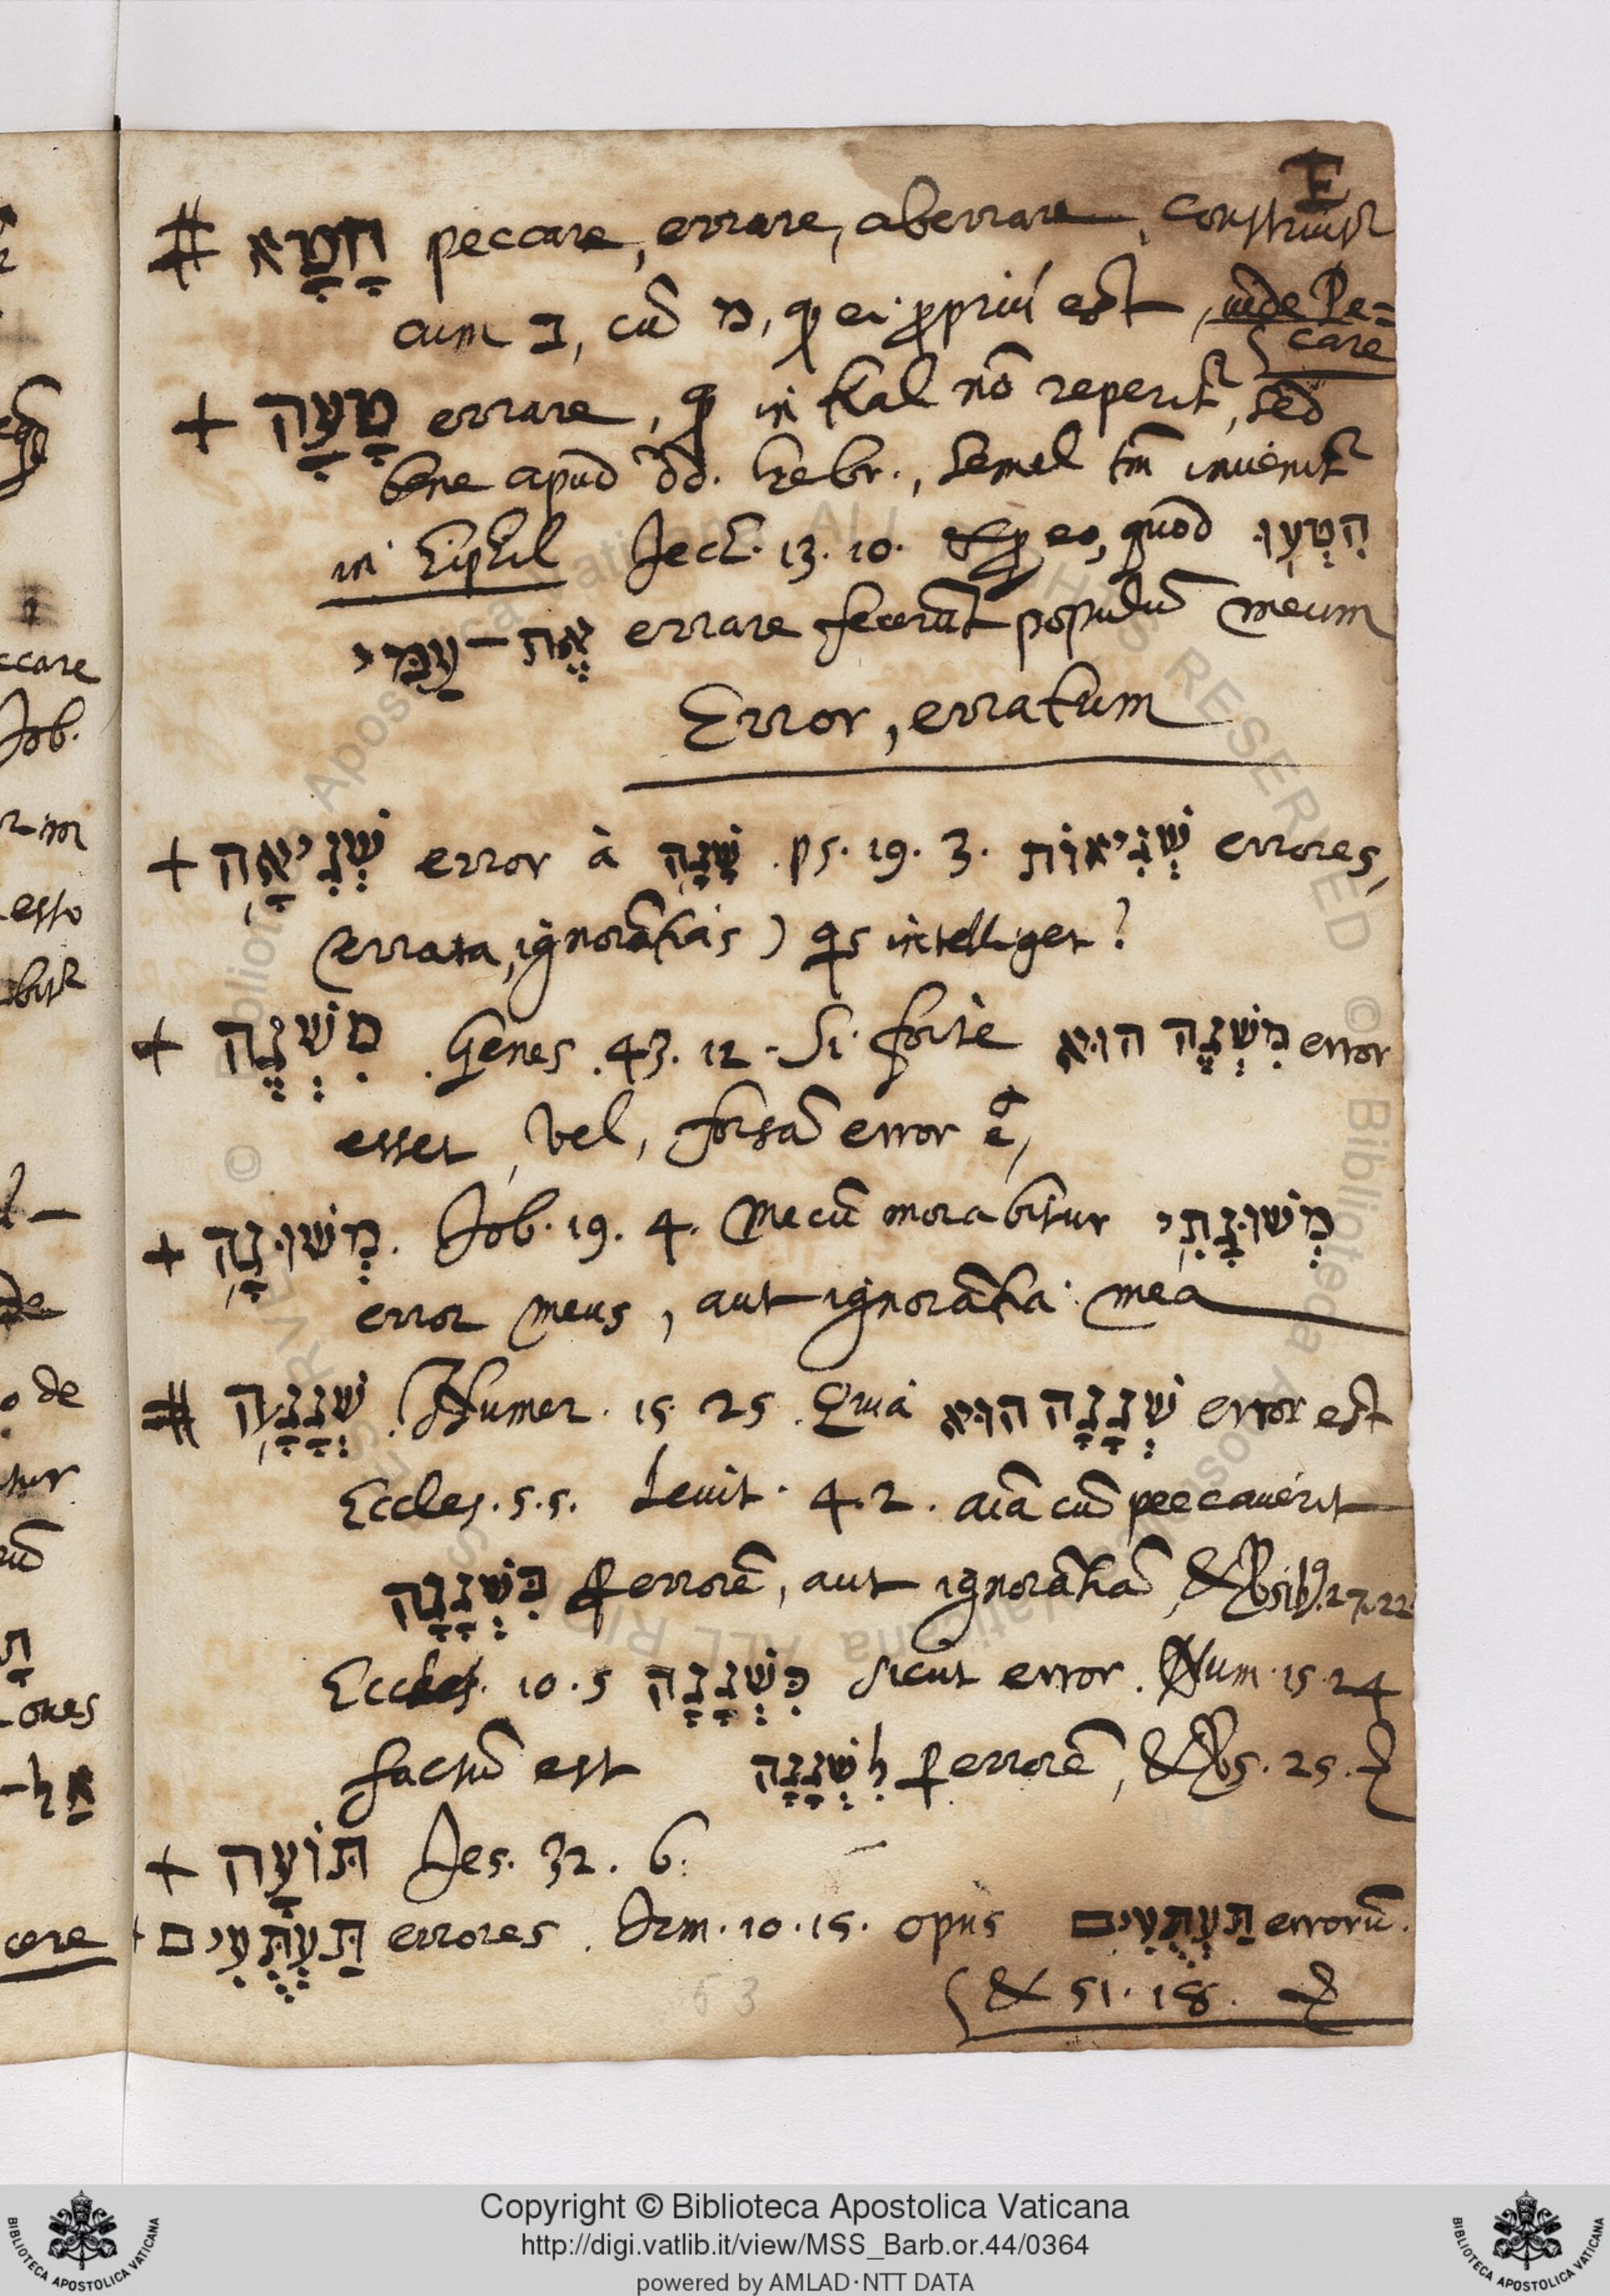 E
# חָטָא peccare, errare, aberrare, construitr
cum ב, cũ מ, qđ ei ꝓpriũ est, uide Pe=
care
+ טָעָה errare, qđ in Kal nõ reperitr, sed
bene apud dd. hebr., semel tm̃ inuenitr
in hiphil Jech. 13. 10. ꝓ eo, quod הִטְעוּ
אֶת־עַמִּי errare fecerũt populũ meum
Error, erratum
+ שְׁגִיאָה error à שָׁגָה. ps. 19. 3. שְׁגִיאוֹת errores,
(errata, ignorãtias) qs intelliget?
+ מִשְׁגֶּה. Genes. 43. 12. Si fortè מִשְׁגֶּה הוּא error
esset, vel, forsã error ẽ,
+ מְשׁוּגָה. Job. 19. 4. Mecũ morabitur מְשׁוּגָתִי
error meus, aut ignorãtia mea
# שְׁגָגָה. Numer. 15. 25. Quia שְׁגָגָה הוּא error est
Eccles. 5. 5. Leuit. 4. 2. aĩa cũ peccauerit
בִּשְׁגָגָה ꝑ errorẽ, aut ignorãtiã, & 27. 22
Eccles. 10. 5 כִּשְׁגָגָה sicut error. Num. 15. 24
factũ est לִשְׁגָגָה ꝑ errorẽ, & vs. 25.
+ תּוֹעָה Jes. 32. 6.
+ תַּעְתֻּעִים errores. Jrm. 10. 15. opus תַּעְתֻּעִים errorũ.
& 51. 18.
53
ccare
Job.
esto
bitr
de
o de
tur
ones
אַל־
cere
© Biblioteca Apostolica Vaticana ALL RIGHTS RESERVED
Copyright © Biblioteca Apostolica Vaticana
http://digi.vatlib.it/view/MSS_Barb.or.44/0364
powered by AMLAD·NTT DATA
BIBLIOTECA APOSTOLICA VATICANA
BIBLIOTECA APOSTOLICA VATICANA